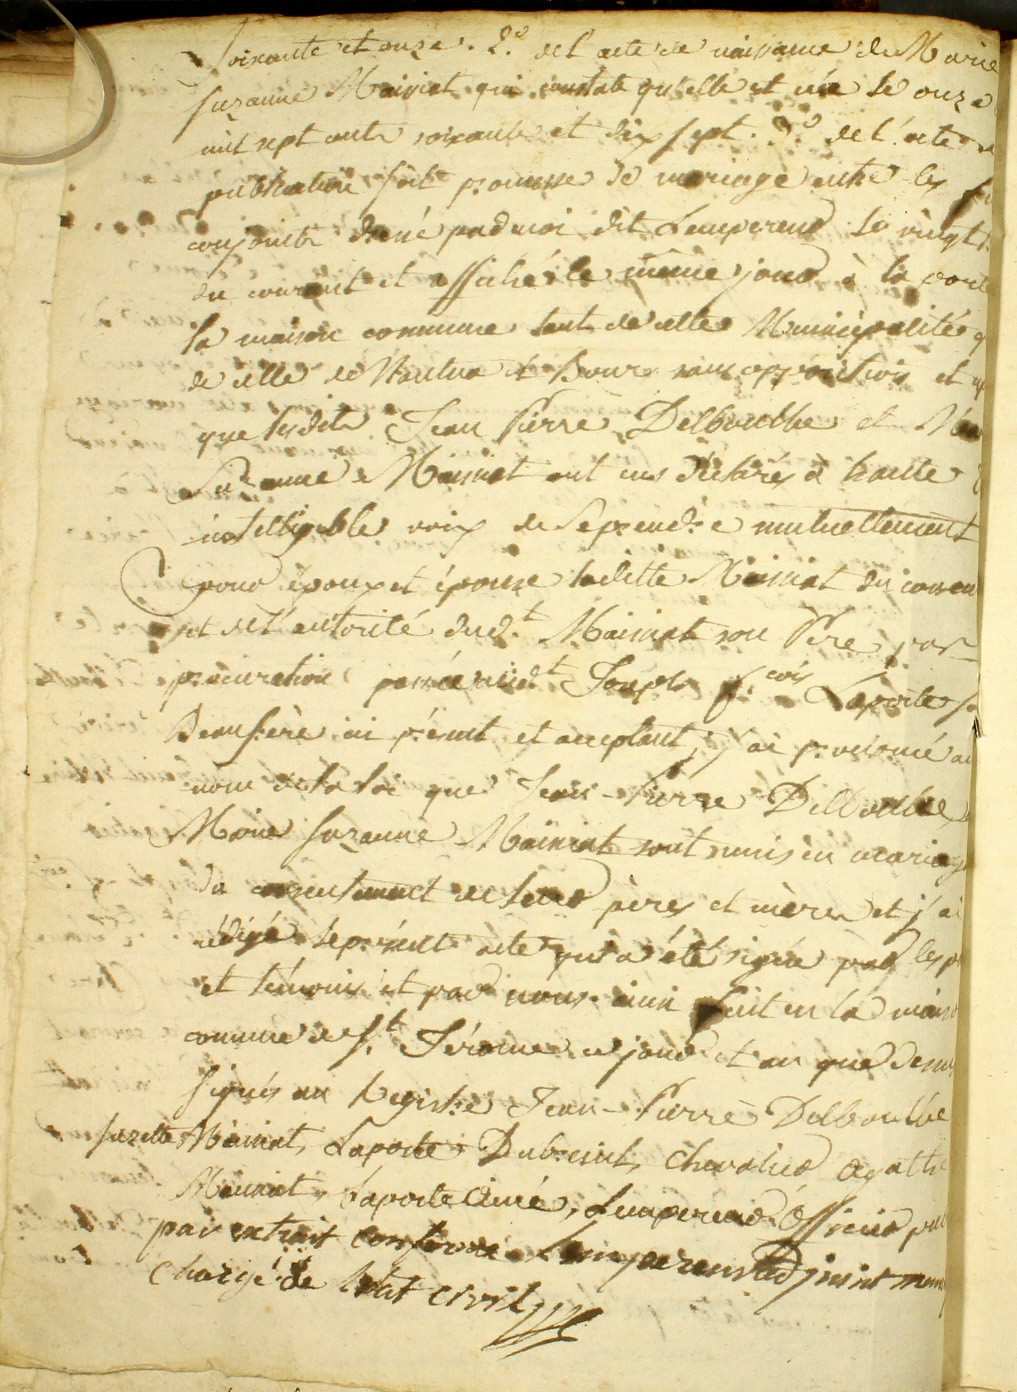 soixante et onze. 2.o de l'acte de naissance de Marie
suzanne Mainiat qui constate qu'elle est née le onze
mil sept cents soixante et dix sept. 3.o de l'acte de
publication soit promesse de mariage entre les
conjoints dressé par moi dit Lempereur le vingt
du courant et affichés le même jour à la porte
la maison commune tant de cette Municipalité
de celle de Nantua et Bourg sans opposition et
que lesdits Jean Pierre Delboulbe et
Suzanne Mainiat ont eus déclarés à haute
intelligible voix de se prendre mutuellement
pour époux et épouse laditte Mainiat du
et de l'autorité dud.t Mainiat son Père, par
procuration passée aud.t Joseph f.cois Laporte
Beaufrère ici présent et acceptant, j'ai prononcé au
nom de la loi que Jean-Pierre Delboulbe
Marie suzanne Mainiat sont unis en mariage
du consentement de leurs pères et mères et j'ai
rédigé le présent acte qui a été signé par les
et témoins et par nous. ainsi fait en la maison
comune de S.t Jérome ce jour et an que dessus
signés au Registre Jean-Pierre Delboulbe
suzette Mainiat, Laporte Chevalier agathe
Mainiat, Laporte Aimé, Lempereur Officier
par extrait conforme Lempereur adjoint
Chargé de l'état civil